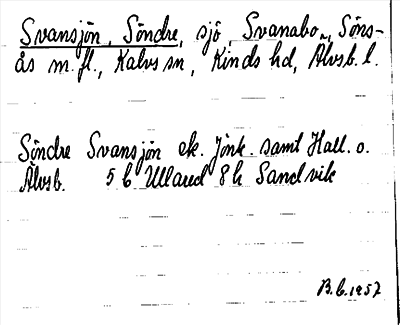 Svansjön, Söndre, sjö, Svanabo, Söns-
ås m.fl., Kalvs sn, Kinds hd, Älvsb. l.
Söndre Svansjön ek. Jönk. samt Hall. o.
Älvsb. 5 C Ullared 8 h Sandvik
B.C. 1957